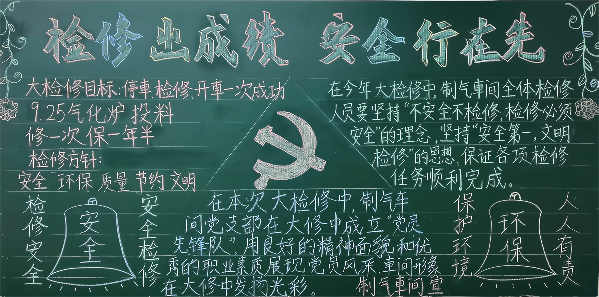 检修出成绩 安全行在先
大检修目标:停車检修,开車一次成功
9.25气化炉投料
修一次保一年半
检修方针:
安全 环保 质量 节约 文明
在今年大检修中,制气車间全体检修
人员要坚持"不安全不检修,检修必须
安全"的理念,坚持"安全第一,文明
检修"的思想,保证各项检修
任务顺利完成。
检修安全
安全
安全检修
在本次大检修中,制气车
间党支部在大修中成立"党员
先锋队",用良好的精神面貌和优
秀的职业素质展现党员风采,車间形象
在大修中发扬光彩。
制气車间宣
保护环境
环保
人人有责